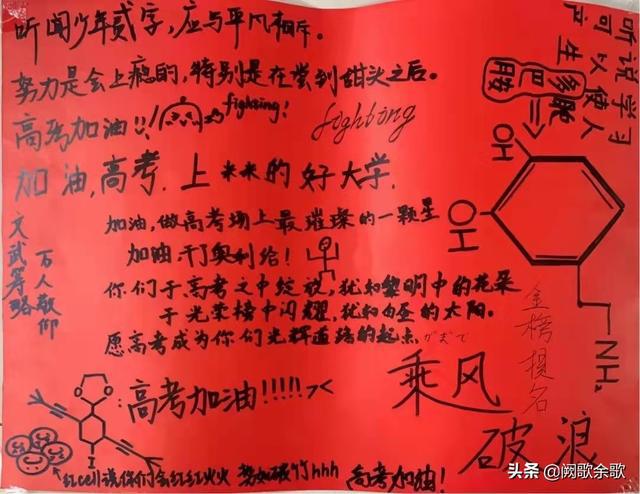 听闻少年贰字，应与平风相斥。
努力是会上瘾的，特别是在尝到甜头之后。
高考加油!! fighting!
fighting
加油,高考.上美美的好大学.
加油,做高考场上最璀璨的一颗星
加油 干了奥利给!
你们于高考之中绽放，犹如黎明中的花朵
于光荣榜中闪耀，犹如白昼的太阳。
愿高考成为你们光辉道路的起点
听说学习
可以使人
产生
多巴胺
OH
OH
NH₂
文武筹略
万人敬仰
金榜提名
乘风
破浪
:高考加油!!!!! ><
I
红cell说你们会红红火火 势如破竹hhh 高考加油!
头条 @阙歌余歌